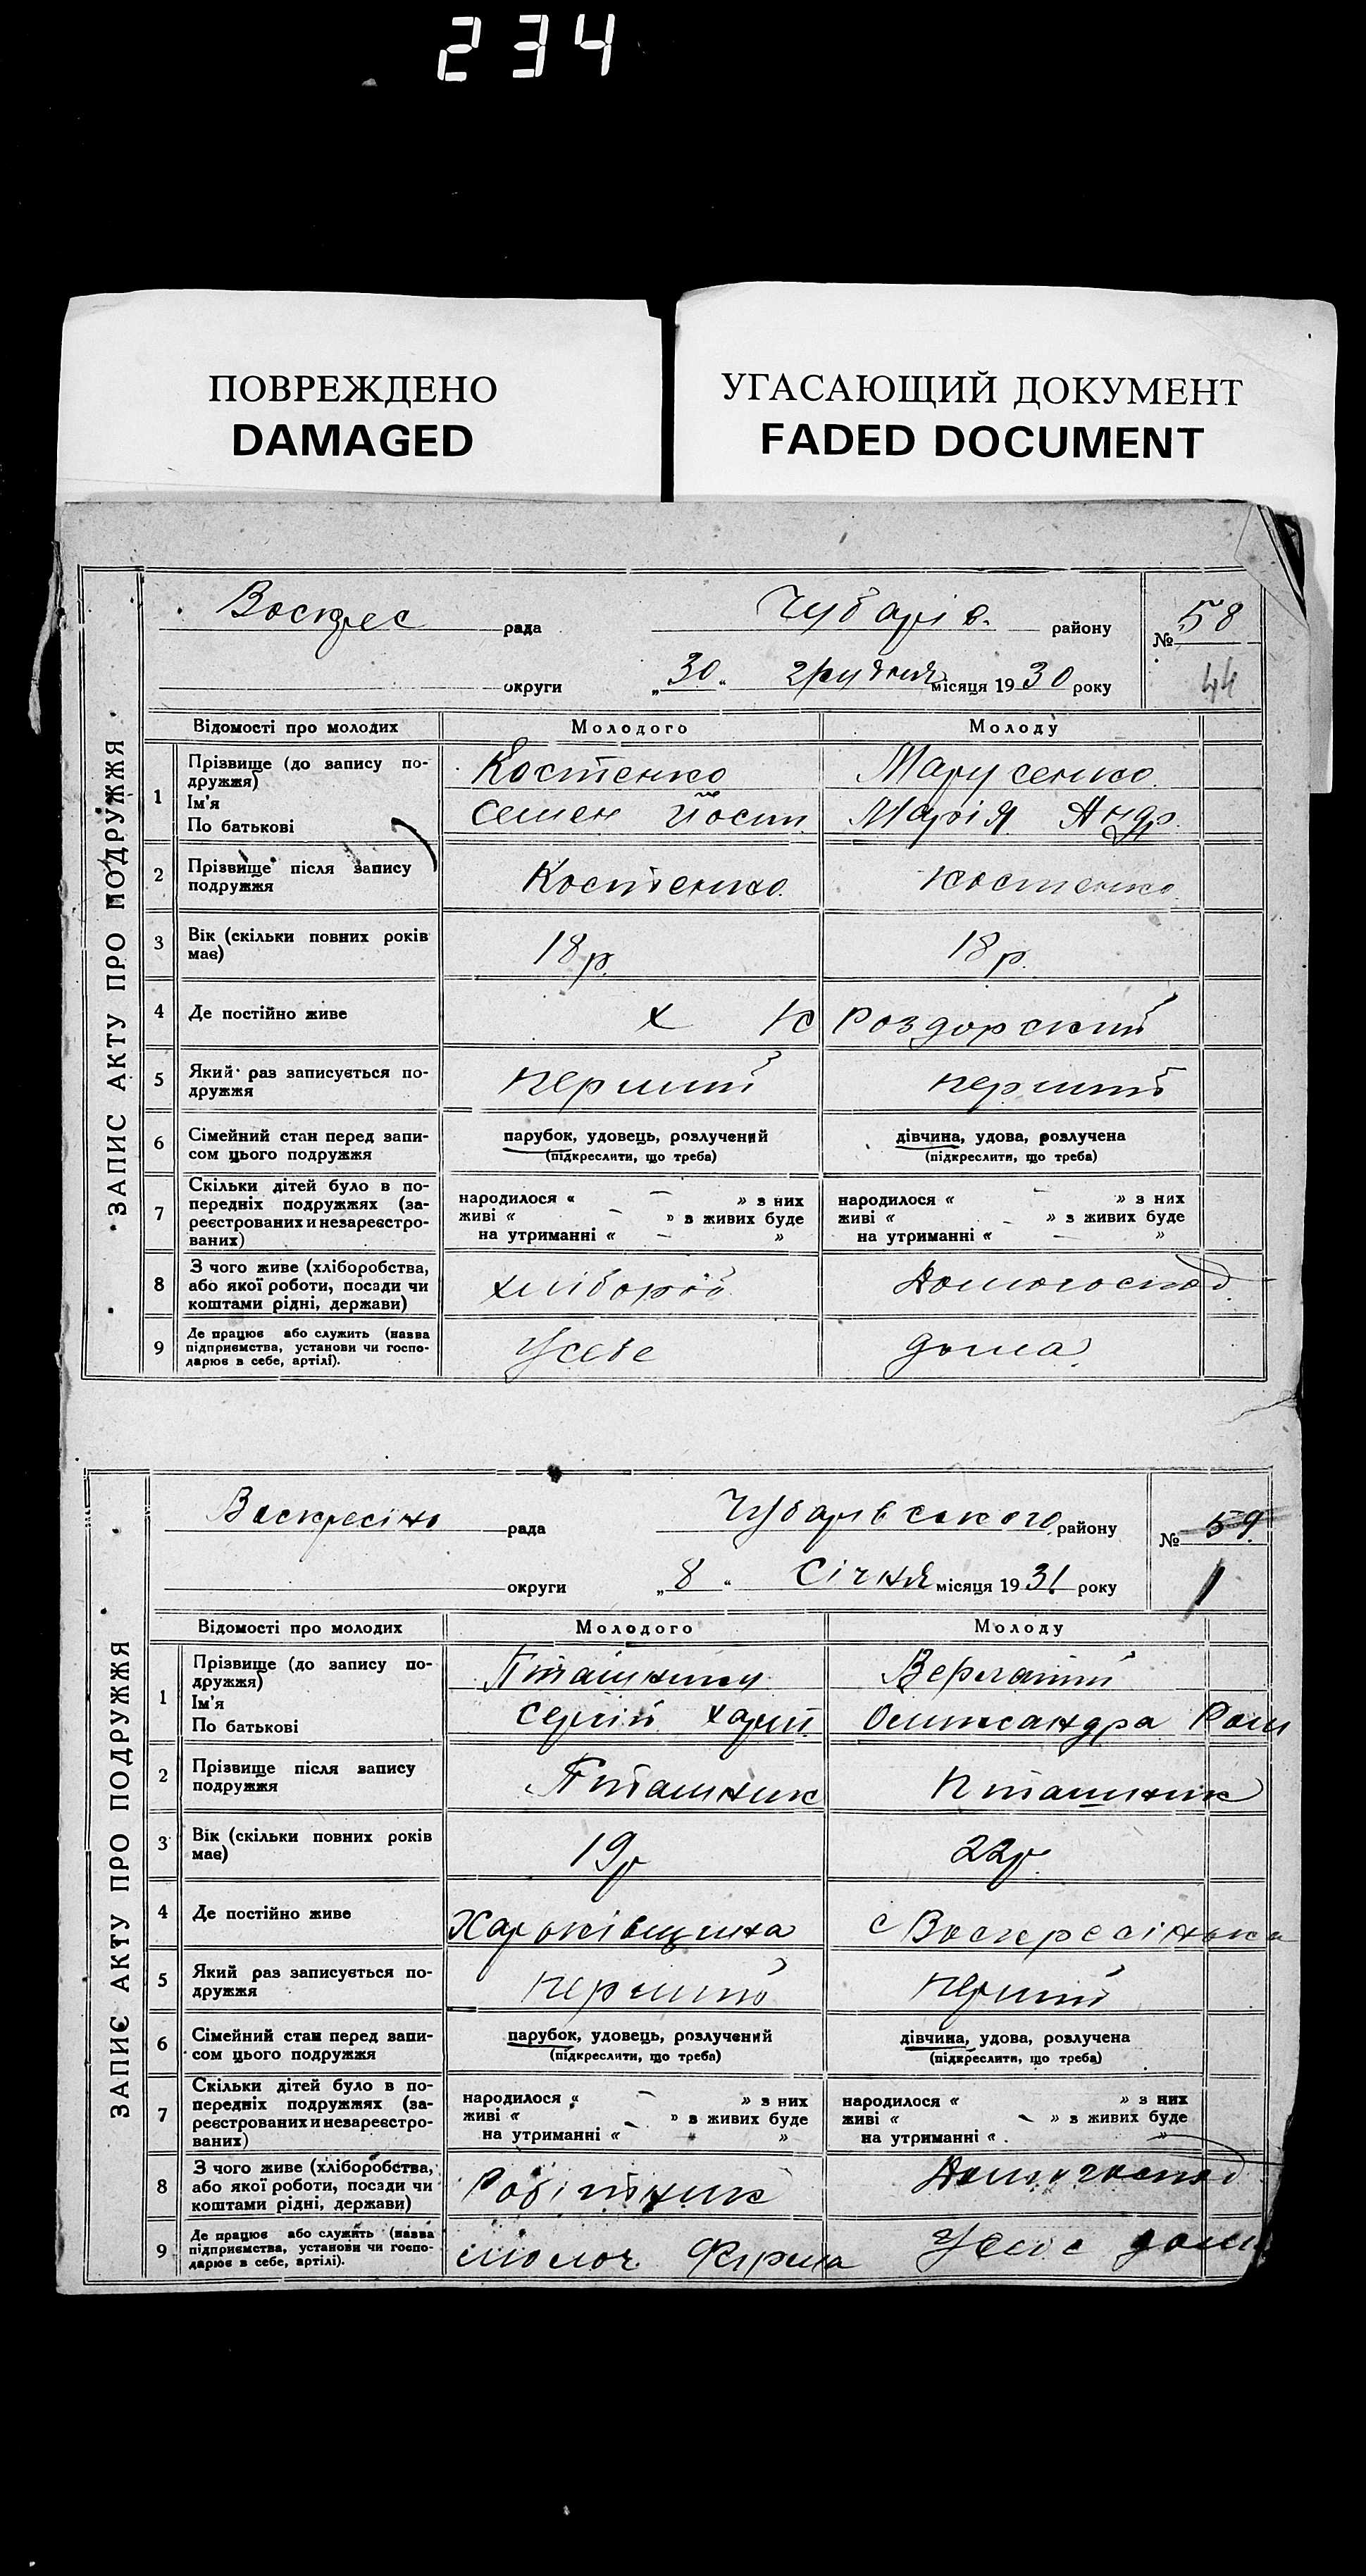 234
ПОВРЕЖДЕНО
DAMAGED
УГАСАЮЩИЙ ДОКУМЕНТ
FADED DOCUMENT
ЗАПИС АКТУ ПРО ПОДРУЖЖЯ
Воскрес рада Чубарів. району № 58
округи „30" грудня місяця 1930 року 44
Відомості про молодих Молодого Молоду
1 Прізвище (до запису по-
дружжя) Костенко Марусенко
Ім'я
По батькові Семен Йосип Марія Андр.
2 Прізвище після запису
подружжя Костенко Костенко
3 Вік (скільки повних років
має) 18 р. 18 р.
4 Де постійно живе х К Роздорский
5 Який раз записується по-
дружжя перший перший
6 Сімейний стан перед запи-
сом цього подружжя
парубок, удовець, розлучений
(підкреслити, що треба)
дівчина, удова, розлучена
(підкреслити, що треба)
7 Скільки дітей було в по-
передніх подружжях (за-
реєстрованих и незареєстро-
ваних)
народилося « — » з них
живі « — » з живих буде
на утриманні « — »
народилося « — » з них
живі « — » з живих буде
на утриманні « — »
8 З чого живе (хліборобства,
або якої роботи, посади чи
коштами рідні, держави) хлібороб Домогоспод.
9 Де працює або служить (назва
підприємства, установи чи госпо-
дарює в себе, артілі). Усебе дома
ЗАПИС АКТУ ПРО ПОДРУЖЖЯ
Воскресінь рада Чубарівского району № 59
округи „8" Січня місяця 1931 року 1
Відомості про молодих Молодого Молоду
1 Прізвище (до запису по-
дружжя) Пташник
Ім'я
По батькові Сергій Олександра Ром
2 Прізвище після запису
подружжя Пташник Пташник
3 Вік (скільки повних років
має) 19 р 22 р.
4 Де постійно живе Харьківщина с Воскресінька
5 Який раз записується по-
дружжя перший перший
6 Сімейний стан перед запи-
сом цього подружжя
парубок, удовець, розлучений
(підкреслити, що треба)
дівчина, удова, розлучена
(підкреслити, що треба)
7 Скільки дітей було в по-
передніх подружжях (за-
реєстрованих и незареєстро-
ваних)
народилося « — » з них
живі « — » з живих буде
на утриманні « »
народилося « » з них
живі « — » з живих буде
на утриманні « »
8 З чого живе (хліборобства,
або якої роботи, посади чи
коштами рідні, держави) Робітник Домогоспод
9 Де працює або служить (назва
підприємства, установи чи госпо-
дарює в себе, артілі). молоч Ферма Усебе дома